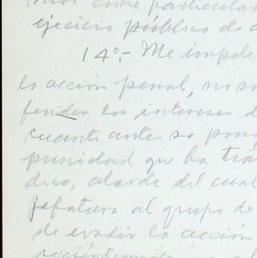 entre particular
ejercicio público de a
14º.- Me impele
la accion penal, no so
fender los intereses d
cuanto ante se pon
punidad que ha tra
dico, alarde del cual
jefatura al grupo de
de evadir la acción